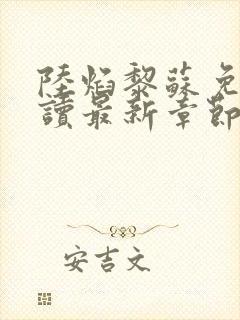 陸焰黎蘇免
讀最新章節
安吉文